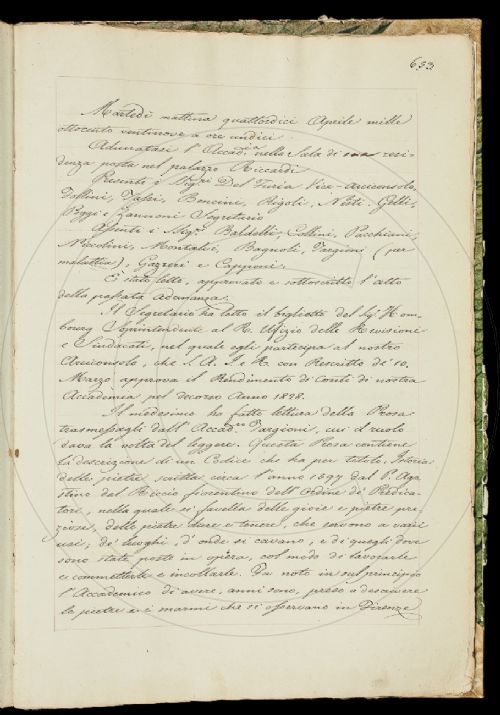 633
Martedì mattina quattordici Aprile mille
ottocento ventinove a ore undici.
Adunatasi l'Accad.ª nella Sala di sua resi-
denza posta nel palazzo Riccardi
Presenti i Sig.ri Del Furia Vice-Arciconsolo,
Follini, Fossi, Bencini, Rigoli, Nesti, Gelli,
Poggi e Zannoni Segretario
Assenti i Sig.ri Baldelli, Collini, Pacchiani,
Niccolini, Montalvi, Bagnoli, Targioni (per
malattia), Gazzeri e Capponi.
È stato letto, approvato e sottoscritto l'atto
della passata adunanza.
Il Segretario ha letto il biglietto del Sig. Hom-
bourg Soprintendente al R. Ufizio delle Revisioni
e Sindacati, nel quale egli partecipa al nostro
Arciconsolo, che S. A. I. e R. con Rescritto de' 10.
Marzo approva il Rendimento di Conti di nostra
Accademia pel decorso Anno 1828.
Il medesimo ha fatto lettura della Prosa
trasmessagli dall'Accad.co Targioni, cui il ruolo
dava la volta del leggere. Questa Prosa contiene
la descrizione di un Codice che ha per titolo, Istoria
delle pietre, scritta circa l'anno 1597 dal P. Ago-
stino del Riccio fiorentino dell'Ordine de' Predica-
tori, nella quale si favella delle gioie e pietre pre-
ziose, delle pietre dure e tenere, che servono a varii
usi, de' luoghi, d'onde si cavano, e di quegli dove
sono state poste in opera, col modo di lavorarle
e commetterle e incollarle. Fa noto in sul principio
l'Accademico di avere, anni sono, preso a descrivere
le pietre e i marmi che si osservano in Firenze